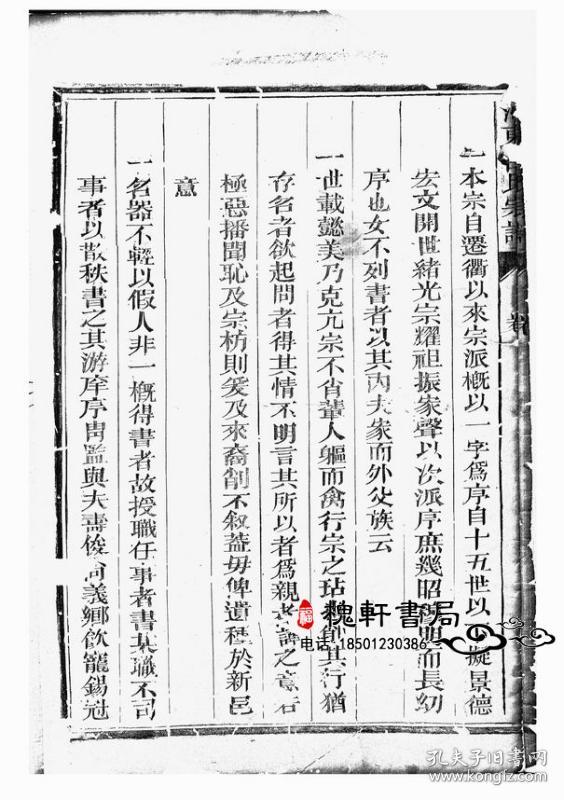 氏宗譜
卷
一本宗自遷衢以來宗派槪以一字爲序自十五世以擬景德
宏文開世緒光宗耀祖振家聲以次派序庶幾昭明而長幼
序也女不列書者以其內夫家而外父族云
一世載懿美乃克亢宗不肖輩人軀而禽行宗之玷其行猶
存名者欲起問者得其情不明言其所以者爲親者諱之意若
極惡播聞恥及宗祊則爰及來裔削不叙蓋毋俾遺種於新邑
意
一名器不輕以假人非一槪得書者故授職任事者書其職不司
事者以散秩書之其游庠序胄監與夫壽俊尚義鄉飮寵錫冠
福
槐軒書局
电话 18501230386
孔夫子旧书网
www.kongfz.com